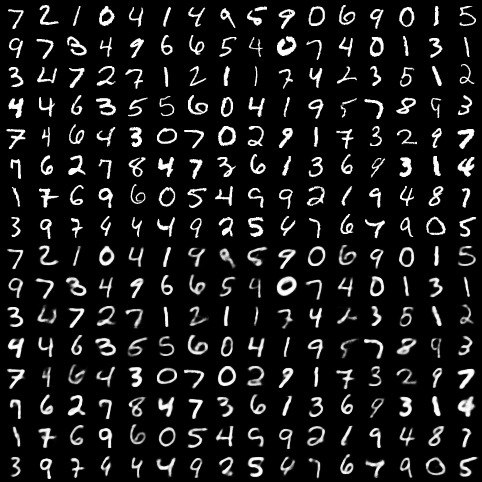 7 2 1 0 4 1 4 9 5 9 0 6 9 0 1 5
9 7 3 4 9 6 6 5 4 0 7 4 0 1 3 1
3 4 7 2 7 1 2 1 1 7 4 2 3 5 1 2
4 4 6 3 5 5 6 0 4 1 9 5 7 8 9 3
7 4 6 4 3 0 7 0 2 9 1 7 3 2 9 7
7 6 2 7 8 4 7 3 6 1 3 6 9 3 1 4
1 7 6 9 6 0 5 4 9 9 2 1 9 4 8 7
3 9 7 4 4 4 9 2 5 4 7 6 7 9 0 5
7 2 1 0 4 1 9 9 5 9 0 6 9 0 1 5
9 7 3 4 9 6 6 5 4 0 7 4 0 1 3 1
3 4 7 2 7 1 2 1 1 7 4 2 3 5 1 2
4 4 6 3 5 5 6 0 4 1 9 5 7 8 9 3
7 4 6 4 3 0 7 0 2 9 1 7 3 2 9 7
7 6 2 7 8 4 7 3 6 1 3 6 9 3 1 4
1 7 6 9 6 0 5 4 9 9 2 1 9 4 8 7
3 9 7 4 4 4 9 2 5 4 7 6 7 9 0 5